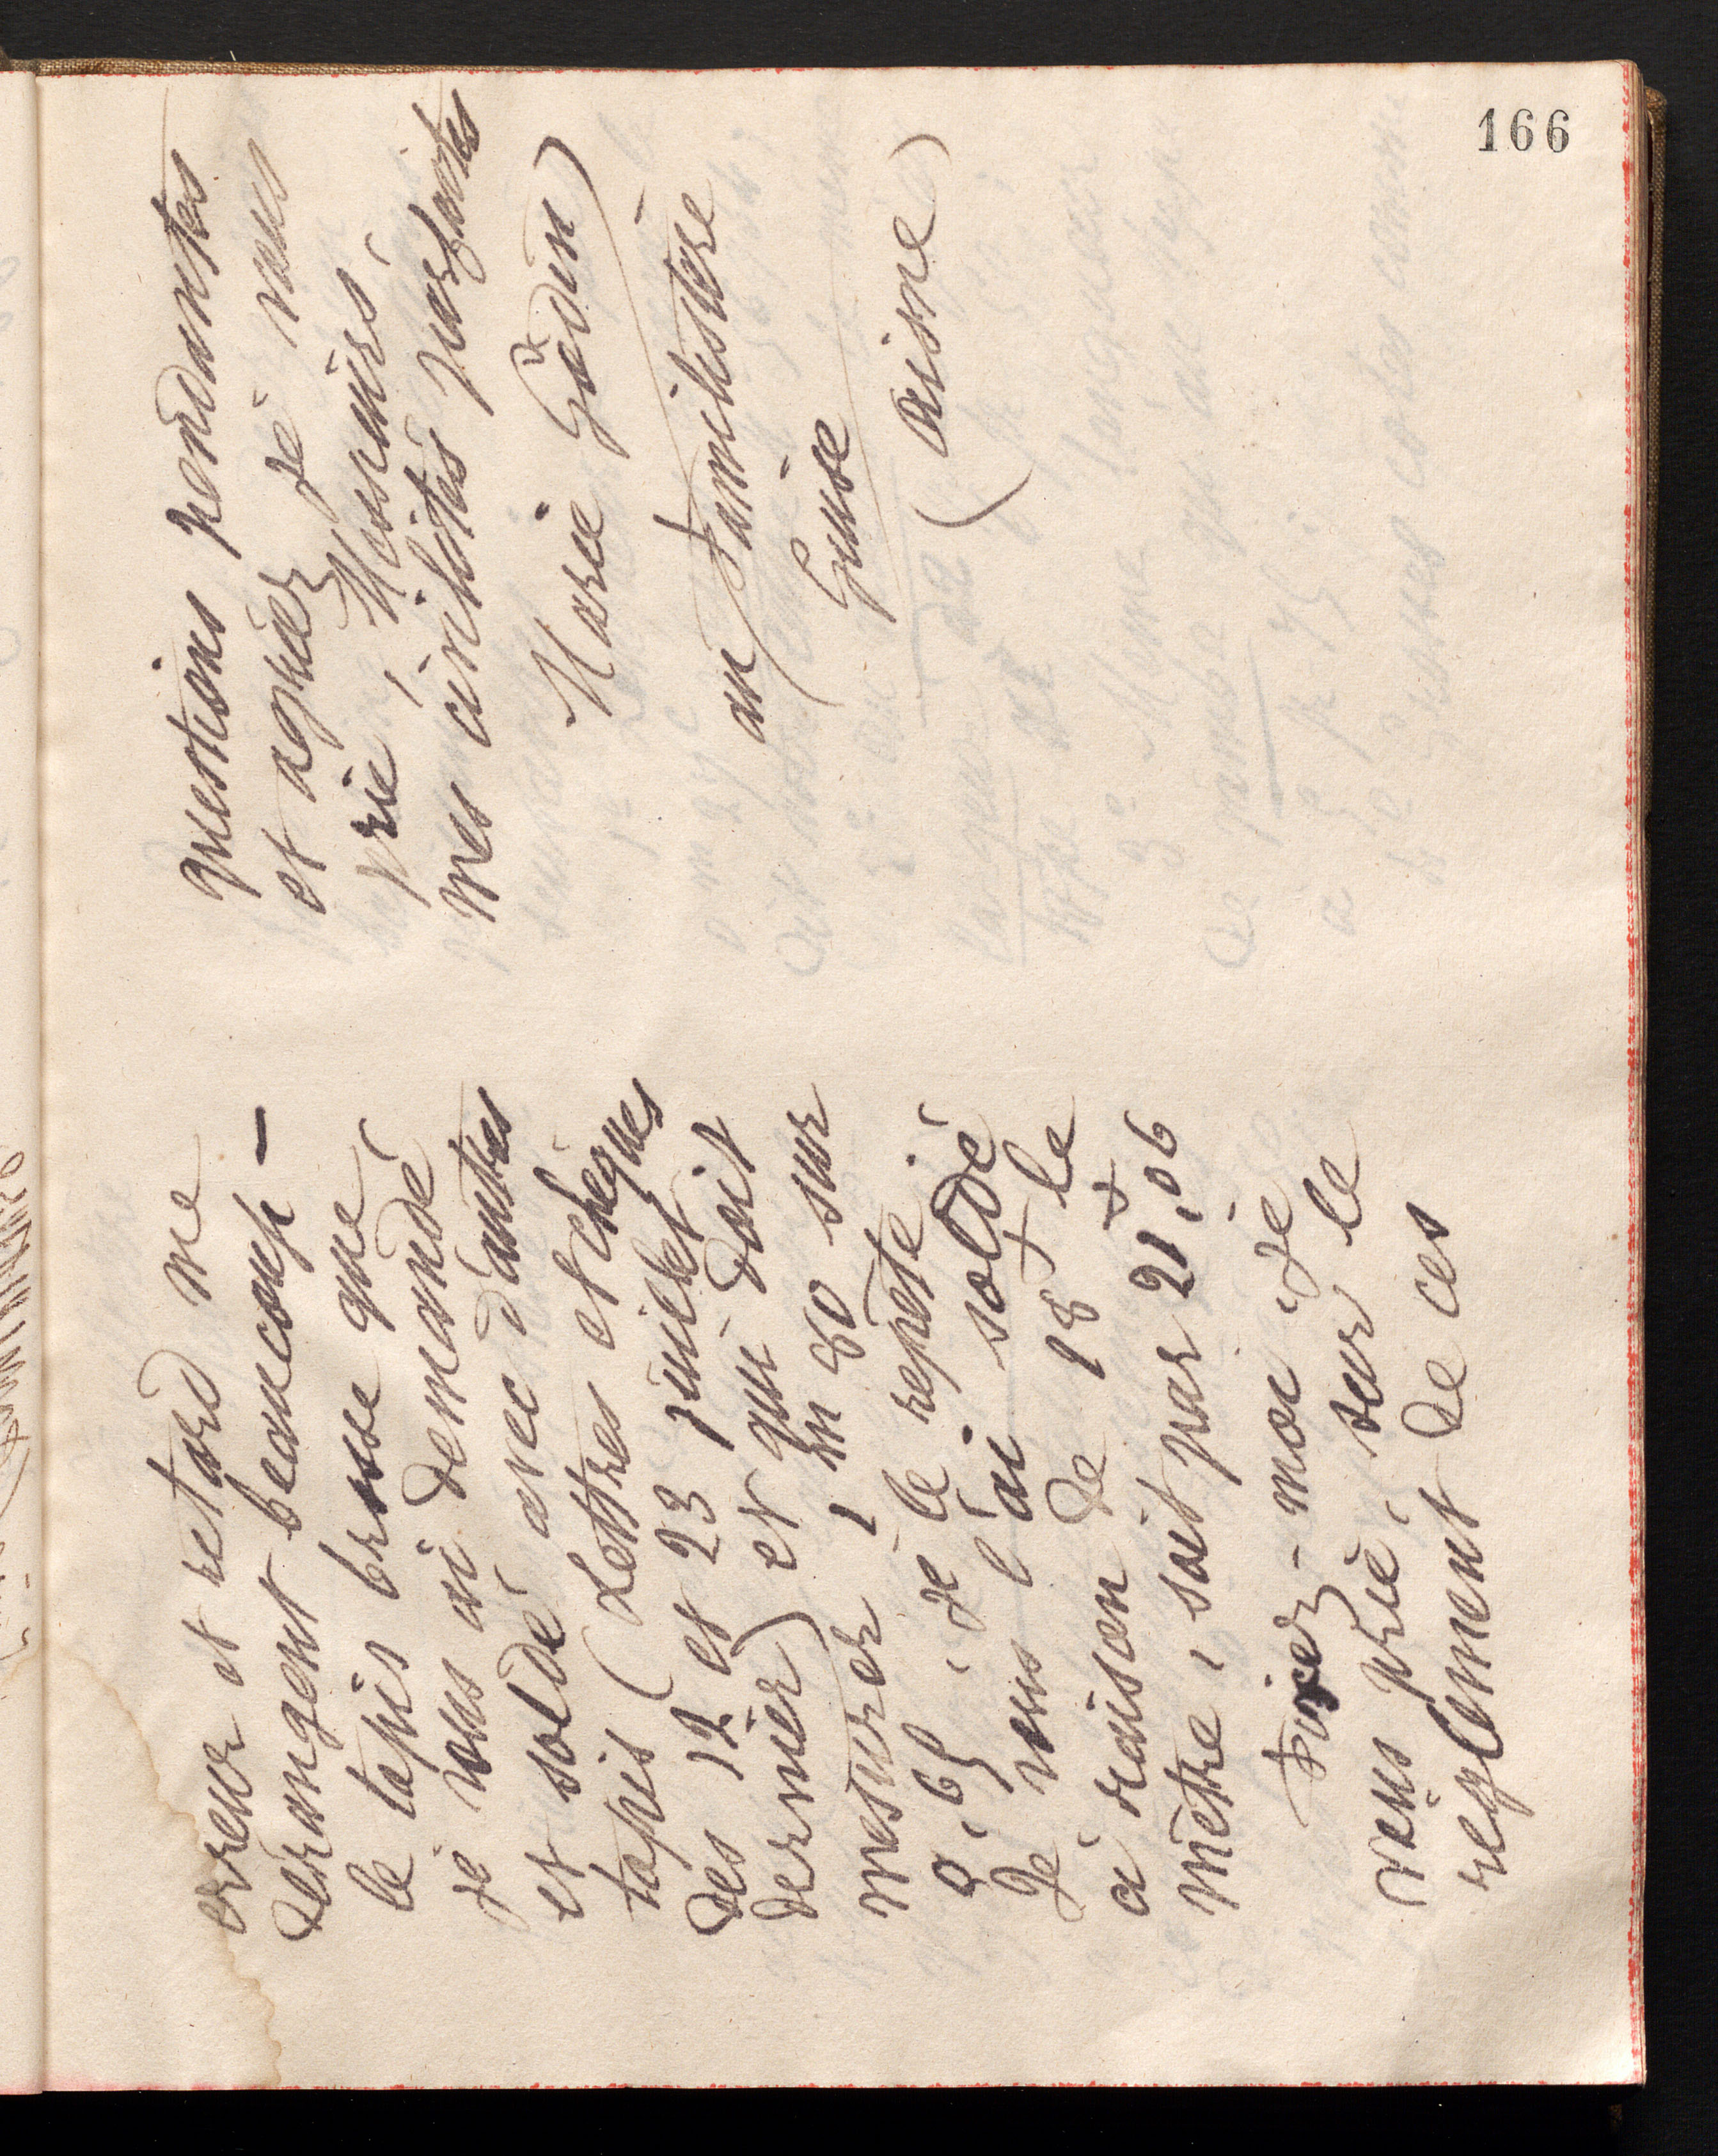 166
erreur et retard me
dérangent beaucoup –
le tapis brosse que
je vous ai demandé
et soldé avec d'autres
tapis (Lettres et chèques
des 12 et 23 juillet
dernier) et qui doit
mesurer 1m80 sur
0,65, je le répète.
Je vous l'ai soldé
à raison de 18f le
mètre, soit par 21f,06
Fixez-moi, je
vous prie, sur le
règlement de ces
questions pendantes
et agréer je vous
prie, Messieurs,
mes civilités parfaites
Marie Godin
au Familistère
Guise
(Aisne)